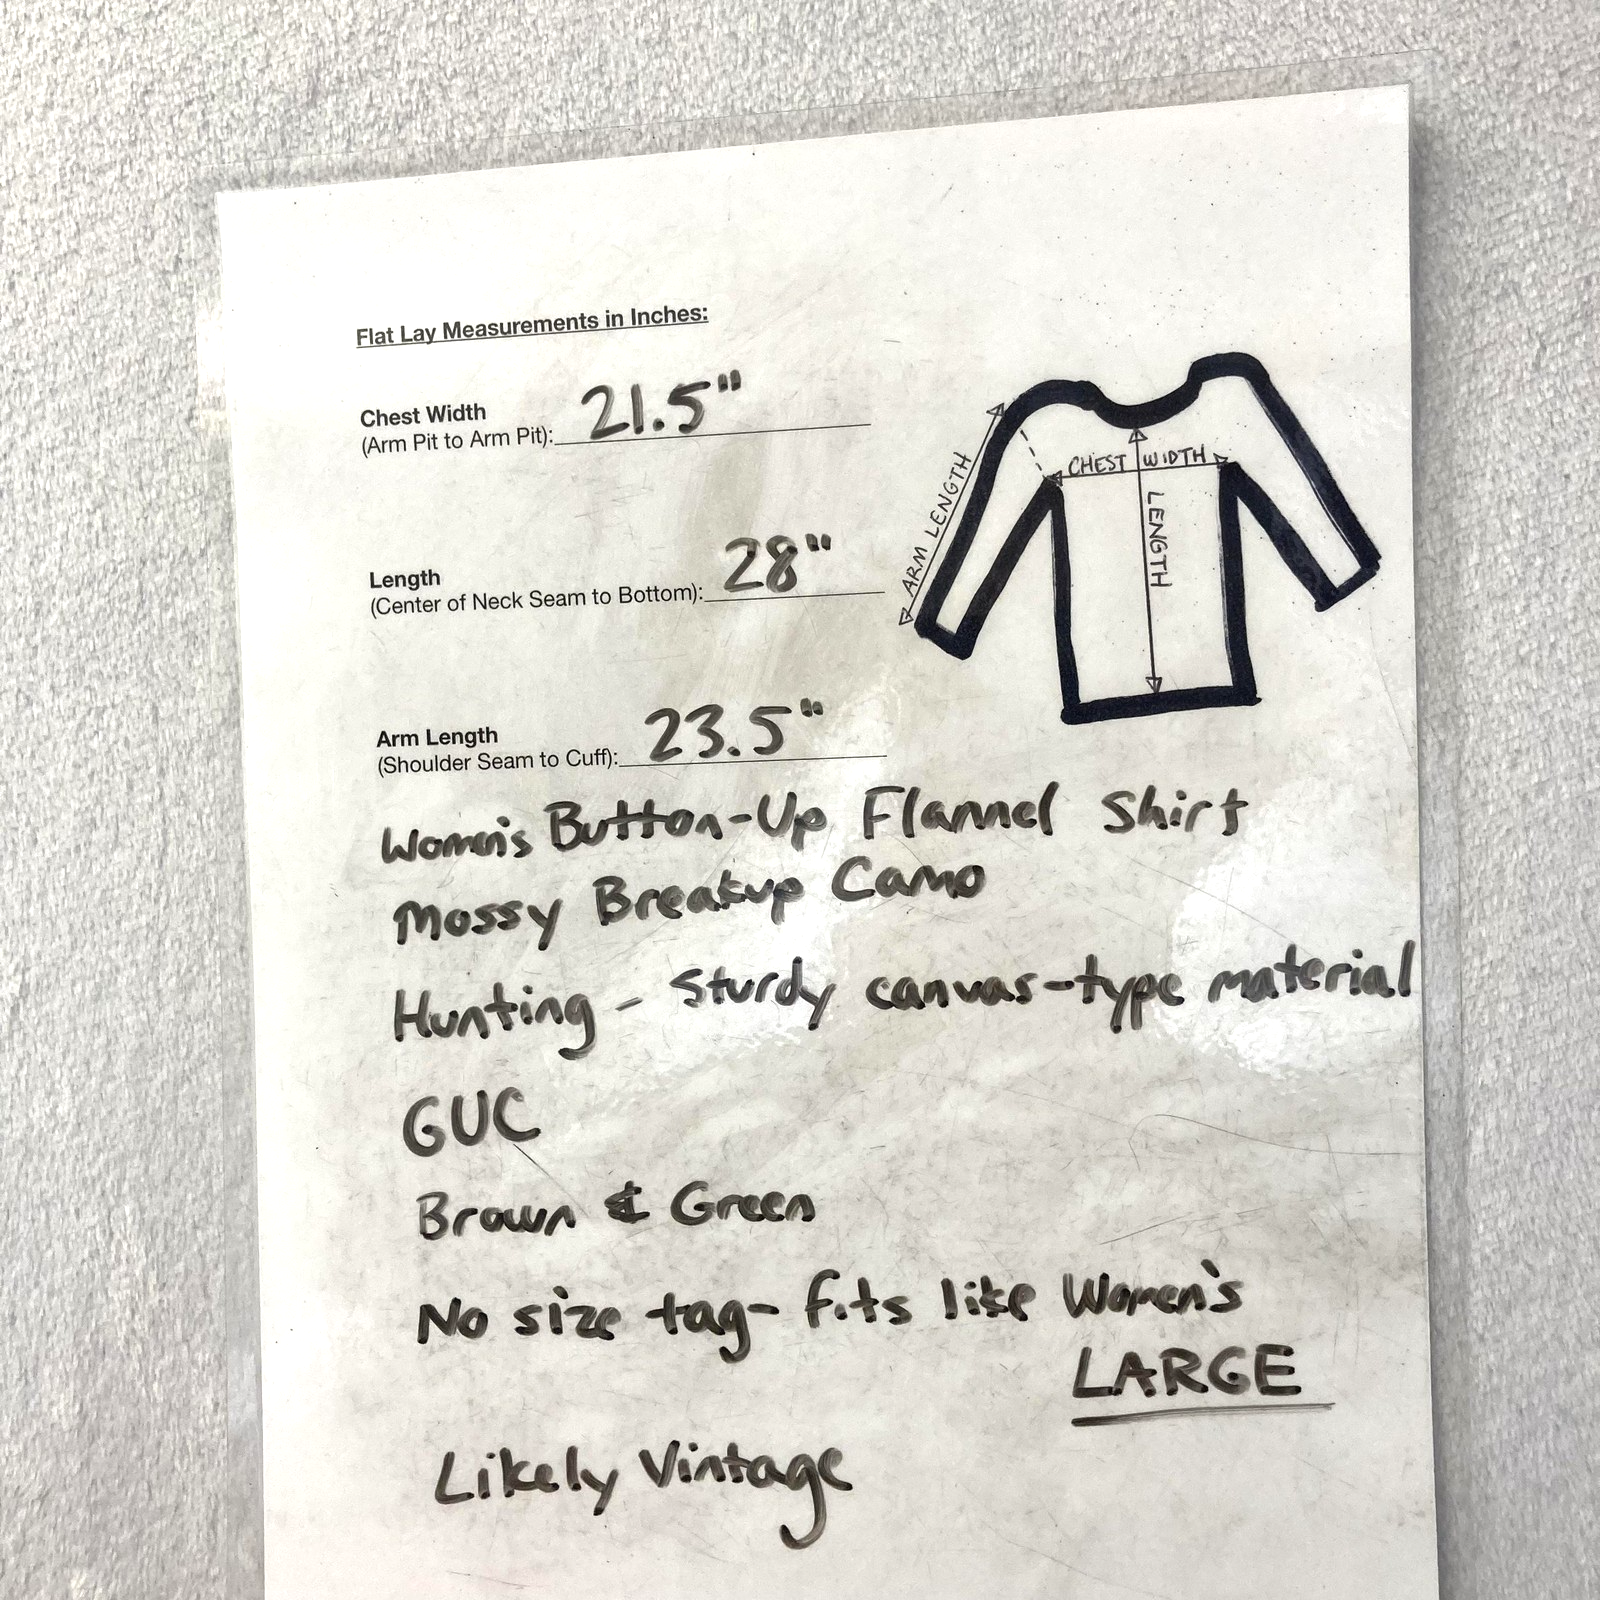 Flat Lay Measurements in Inches:
Chest Width
(Arm Pit to Arm Pit): 21.5"
Length
(Center of Neck Seam to Bottom): 28"
Arm Length
(Shoulder Seam to Cuff): 23.5"
ARM LENGTH
CHEST WIDTH
LENGTH
Women's Button-Up Flannel Shirt
Mossy Breakup Camo
Hunting - Sturdy canvas-type material
GUC
Brown & Green
No size tag- fits like Women's
LARGE
Likely Vintage